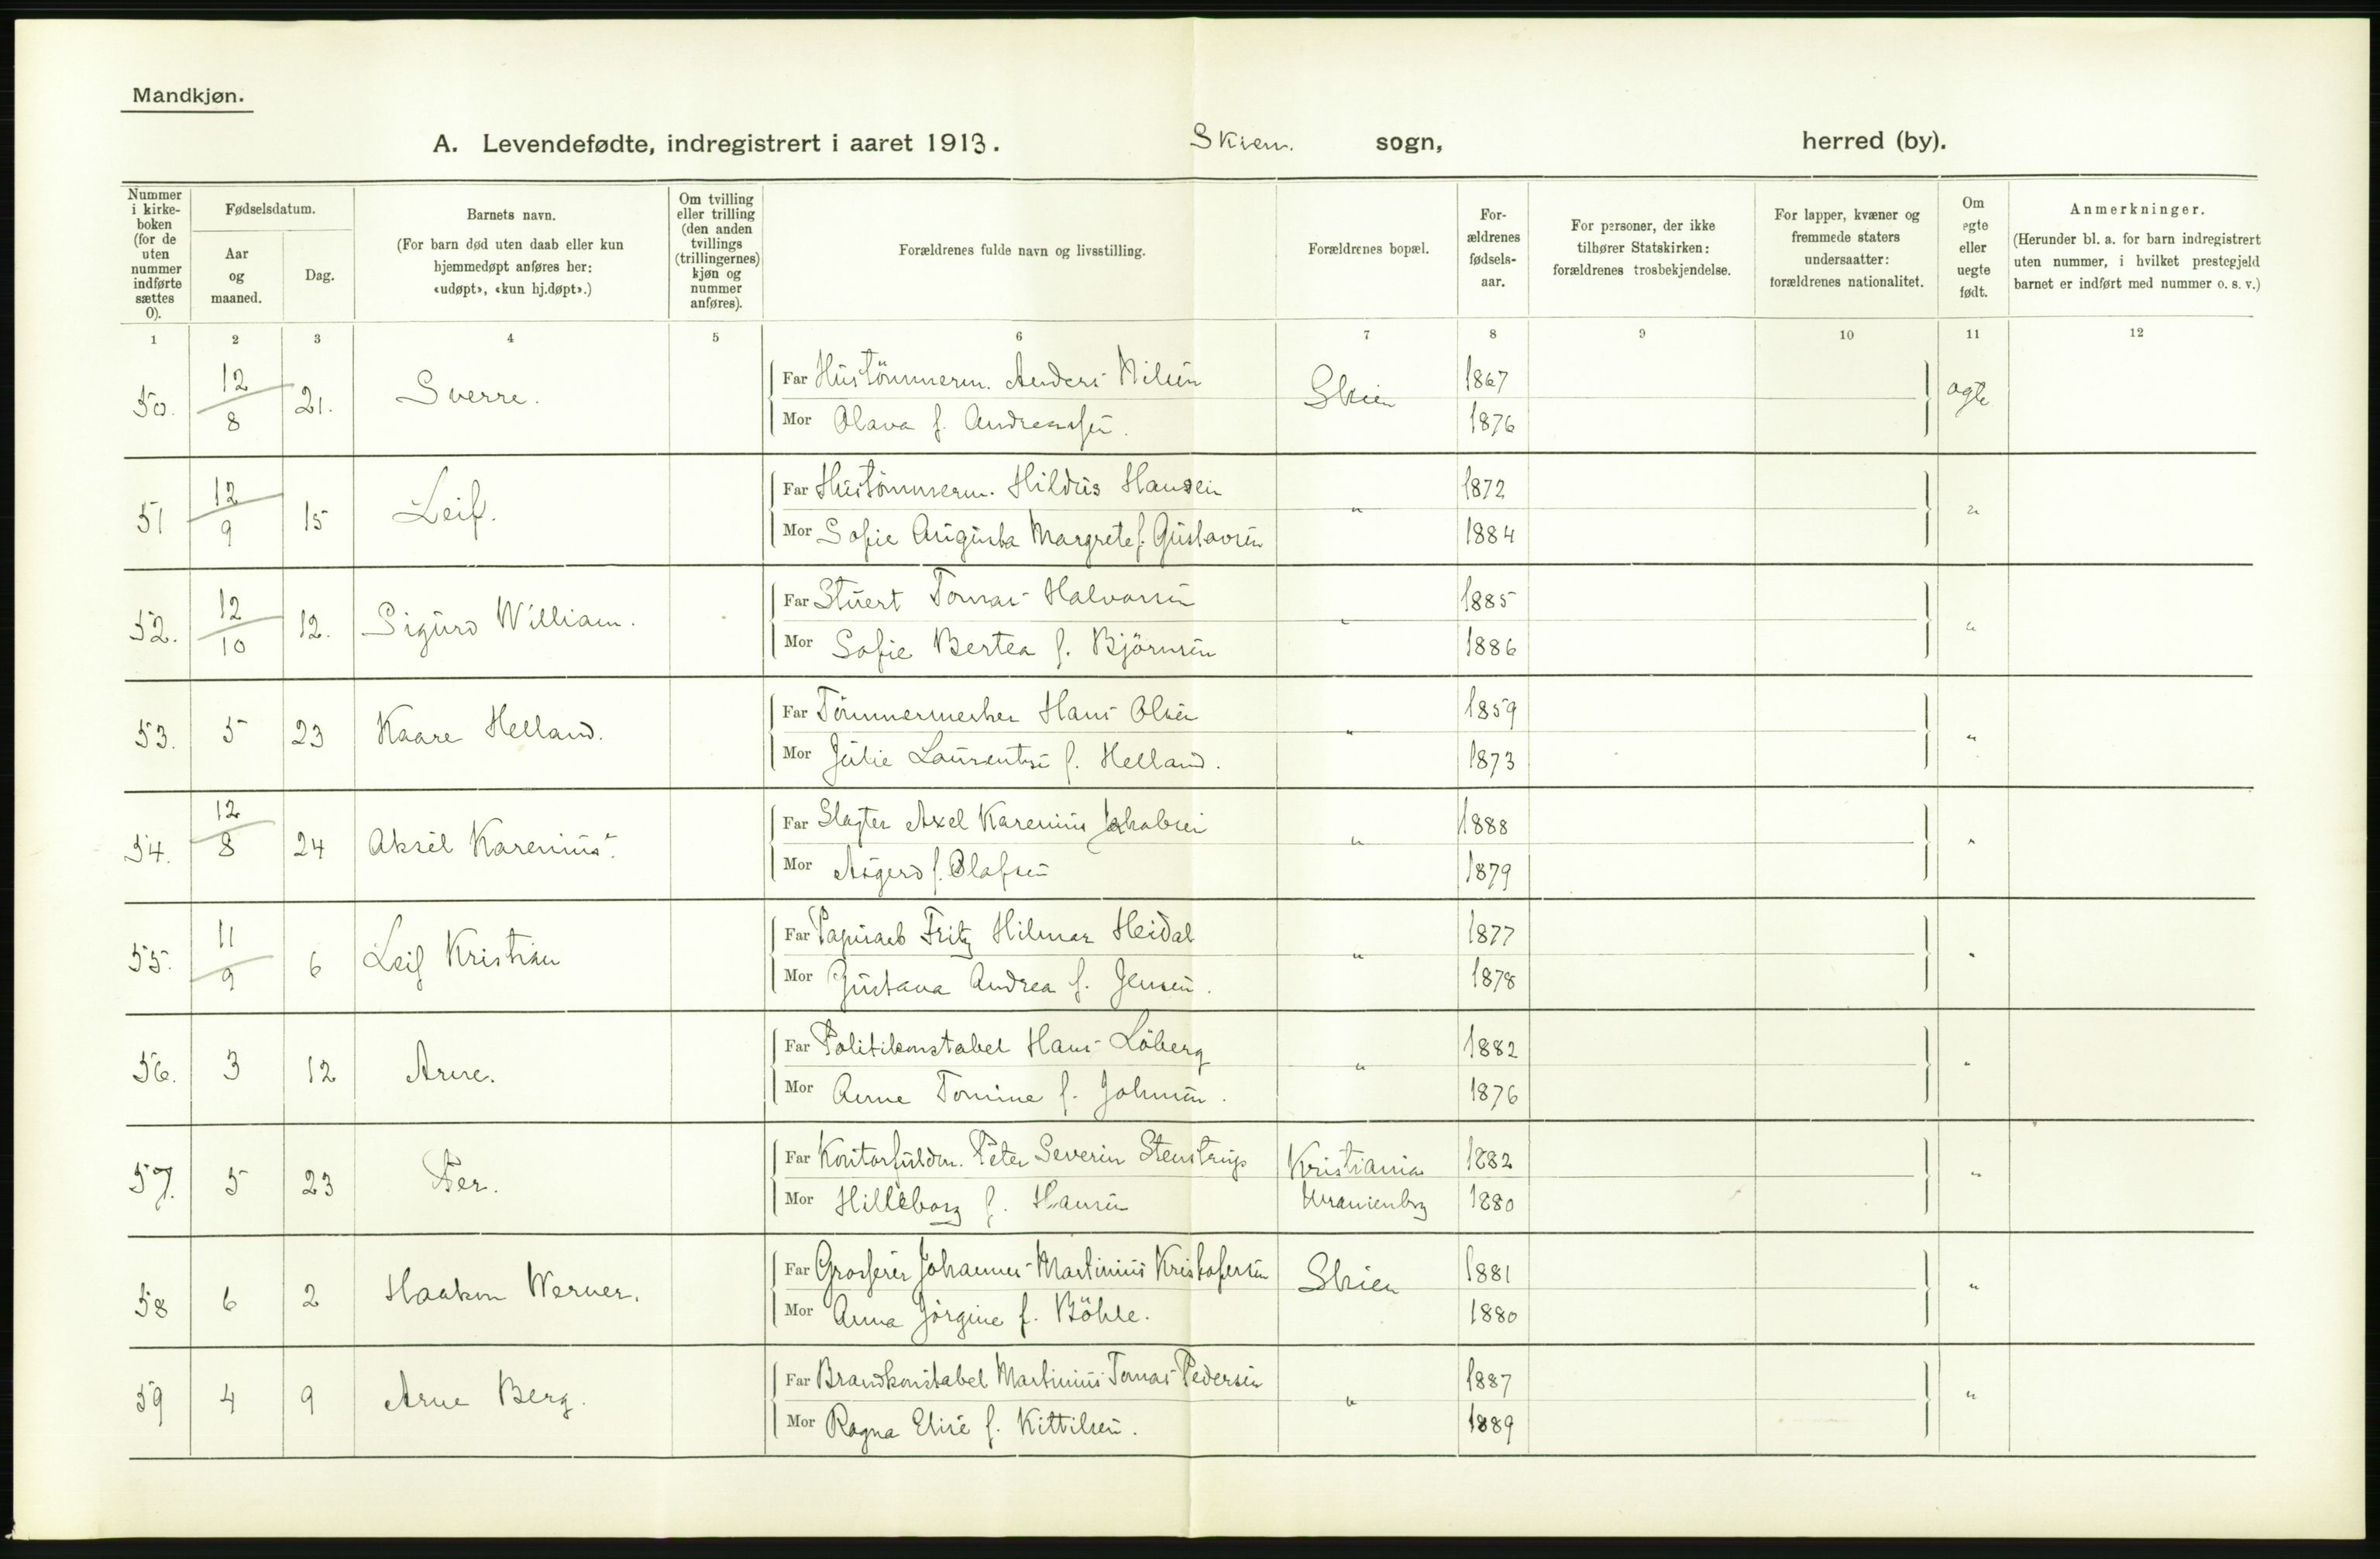 Mandkjøn.
A. Levendefødte, indregistrert i aaret 1913. Skien. sogn, herred (by).
Nummer i kirkeboken (for de uten nummer indførte sættes 0).
Fødselsdatum.
Aar og maaned.
Dag.
Barnets navn.
(For barn død uten daab eller kun hjemmedøpt anføres her: «udøpt», «kun hj.døpt».)
Om tvilling eller trilling (den anden tvillings (trillingernes) kjøn og nummer anføres).
Forældrenes fulde navn og livsstilling.
Forældrenes bopæl.
Forældrenes fødselsaar.
For personer, der ikke tilhører Statskirken: forældrenes trosbekjendelse.
For lapper, kvæner og fremmede staters undersaatter: forældrenes nationalitet.
Om egte eller uegte født.
Anmerkninger.
(Herunder bl. a. for barn indregistrert uten nummer, i hvilket prestegjeld barnet er indført med nummer o. s. v.)
1 2 3 4 5 6 7 8 9 10 11 12
50. 12/8 21. Sverre. Far Hustömmerm. Anders Nilsen Skien 1867 ægte
Mor Olava f. Andreassen. 1876
51 12/9 15 Leif. Far Hustömmerm. Hildus Hansen " 1872 "
Mor Sofie Augusta Margrete f. Gustavsen 1884
52. 12/10 12. Sigurd William. Far Stuert Tomas Halvorsen " 1885 "
Mor Sofie Bertea f. Björnsen 1886
53. 5 23 Kaare Helland. Far Tömmermester Hans Olsen " 1859 "
Mor Julie Laurentse f. Helland. 1873
54. 12/8 24 Aksel Karenius. Far Slagter Axel Karenius Jakobsen " 1888 "
Mor Asgerd f. Olafsen 1879
55. 11/9 6 Leif Kristian Far Papirarb Fritz Hilmar Heidal " 1877 "
Mor Gustava Andrea f. Jensen. 1878
56. 3 12 Arne. Far Politikonstabel Hans Löberg " 1882 "
Mor Anne Tomine f. Johnsen. 1876
57. 5 23 Per. Far Kontorfuldm. Peter Severin Stenstrup Kristiania 1882 "
Mor Hilleborg f. Hansen Uranienborg 1880
58 6 2 Haakon Werner. Far Grosserer Johannes Martinius Kristofersen Skien 1881 "
Mor Anna Jörgine f. Böhle. 1880
59 4 9 Arne Berg. Far Brandkonstabel Martinius Tomas Pedersen " 1887 "
Mor Ragna Elise f. Kittilsen. 1889